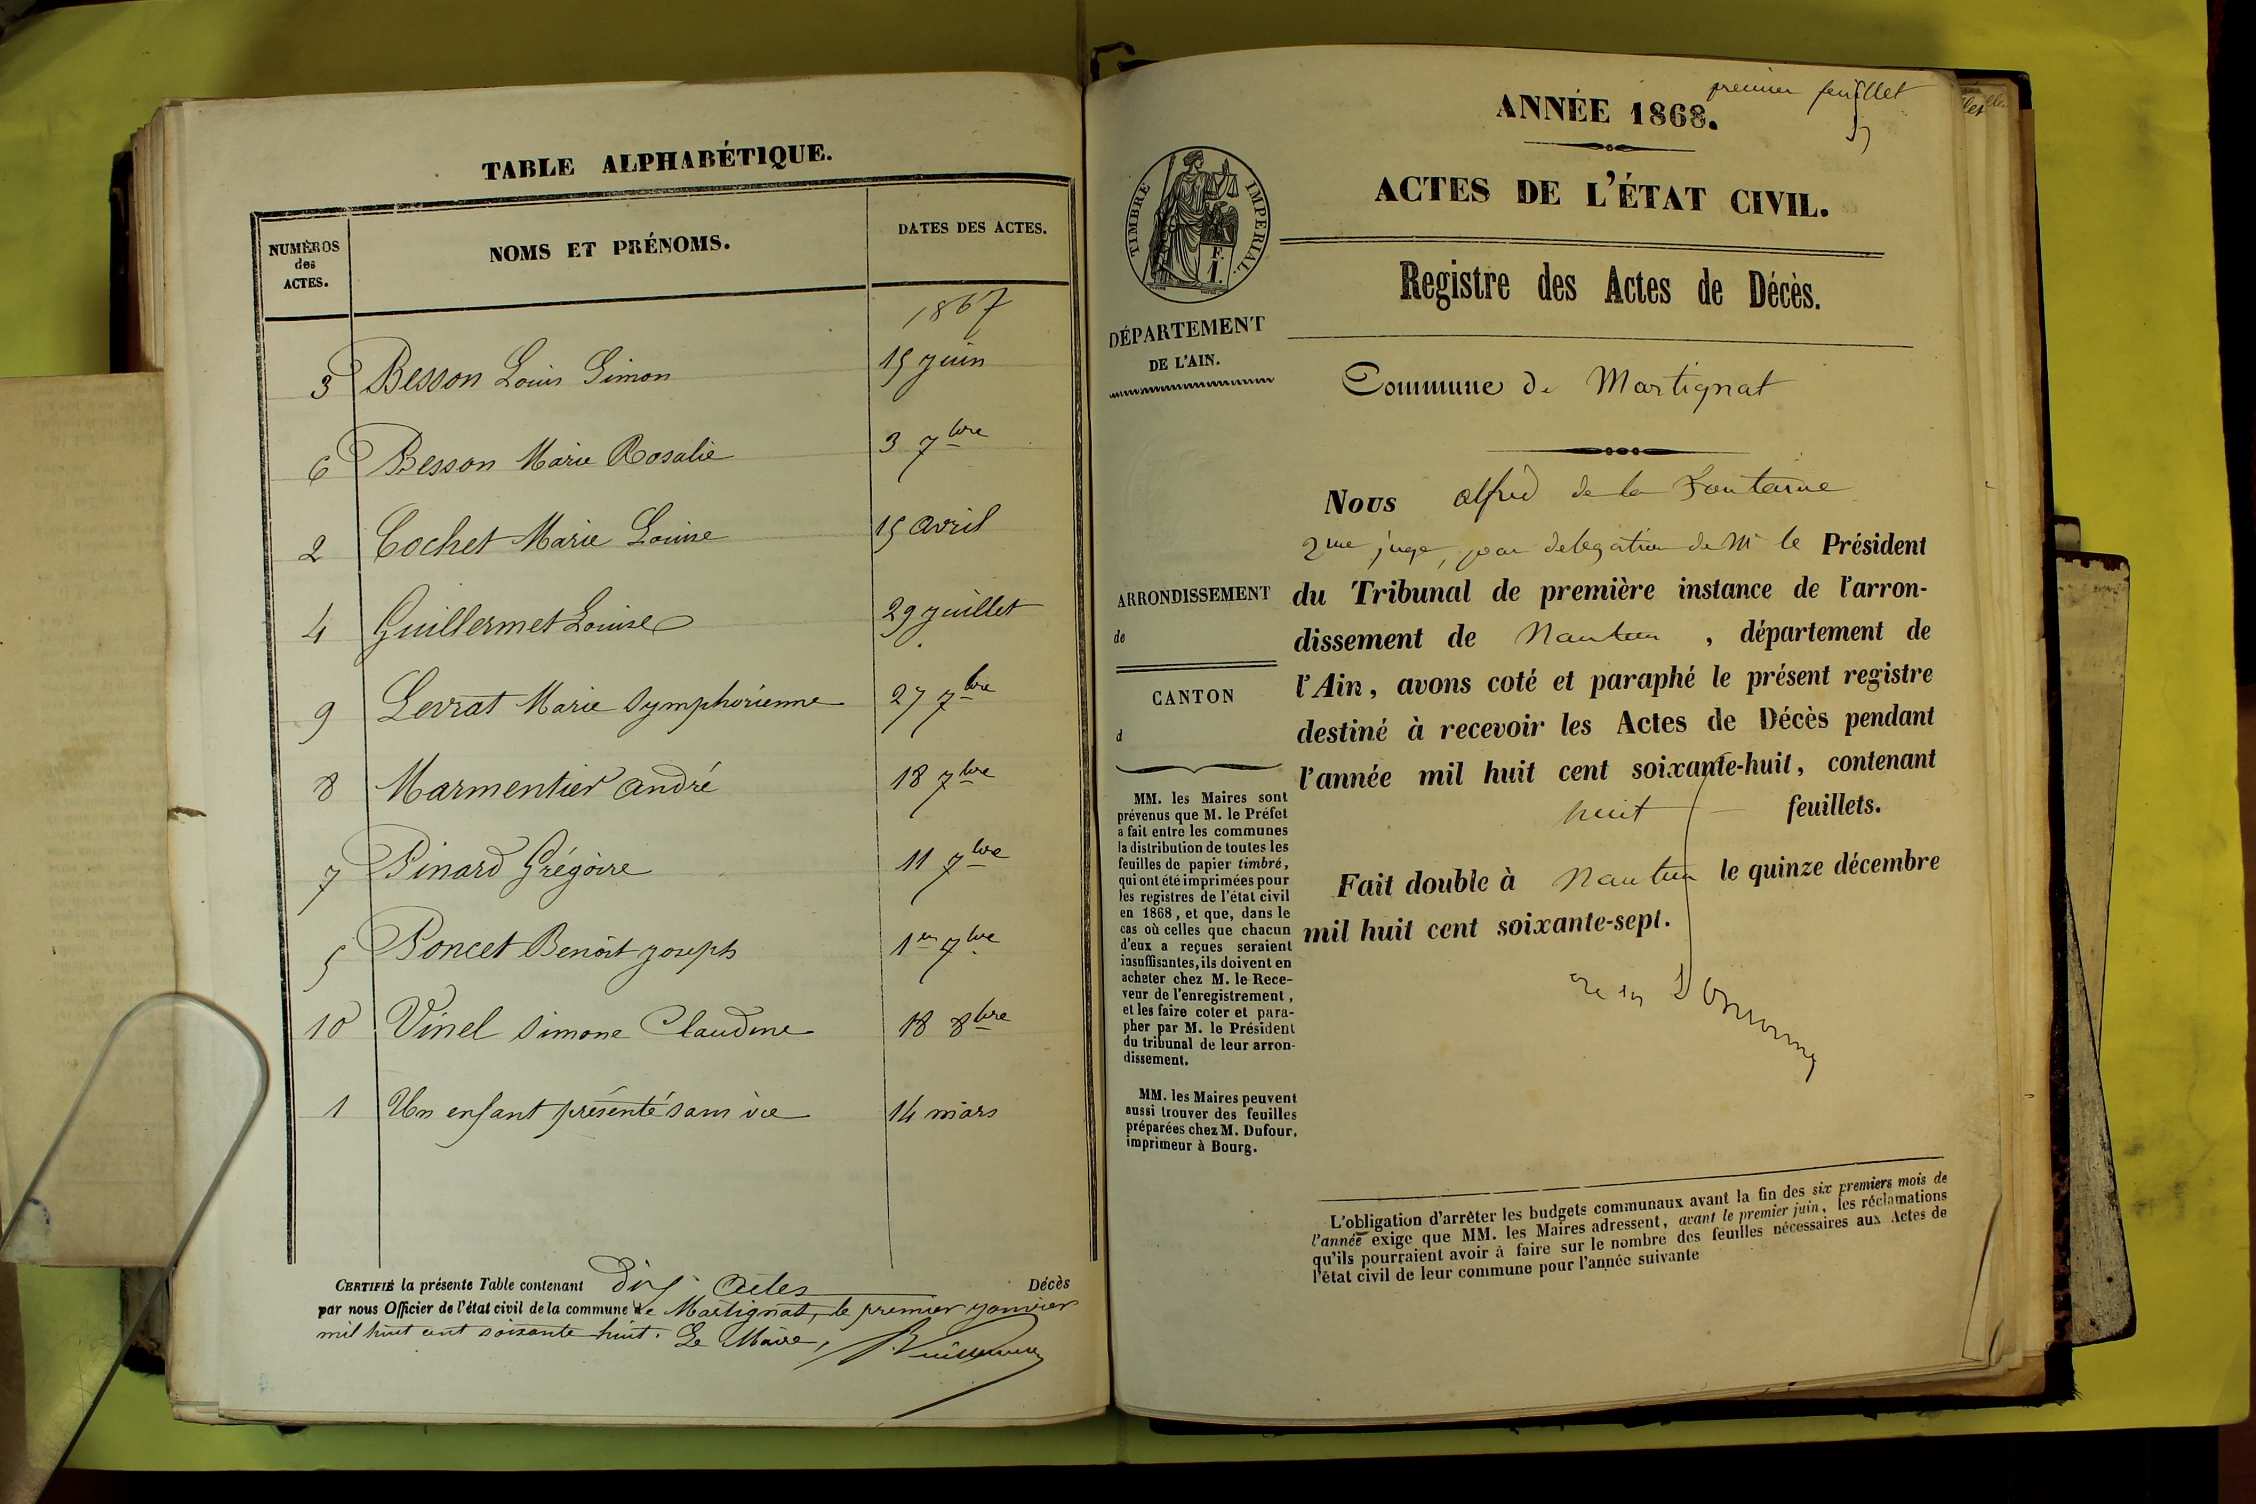 TABLE ALPHABÉTIQUE.
NUMÉROS
des
ACTES.
NOMS ET PRÉNOMS.
DATES DES ACTES.
1867
3 Besson Louis Simon 15 juin
6 Besson Marie Rosalie 3 7bre
2 Cochet Marie Louise 15 avril
4 Guillermet Louise 29 juillet
9 Levrat Marie Symphorienne 27 7bre
8 Marmentier André 18 7bre
7 Pinard Grégoire 11 7bre
5 Poncet Benoit joseph 1er 7bre
10 Vinel Simone Claudine 18 8bre
1 Un enfant présenté sans vie 14 mars
CERTIFIÉ la présente Table contenant dix Actes Décès
par nous Officier de l'état civil de la commune de Martignat, le premier janvier
mil huit cent soixante huit. Le Maire,
premier feuillet
ANNÉE 1868.
ACTES DE L'ÉTAT CIVIL.
TIMBRE IMPÉRIAL.
Registre des Actes de Décès.
DÉPARTEMENT
DE L'AIN.
Commune de Martignat
ARRONDISSEMENT
de
CANTON
d
MM. les Maires sont
prévenus que M. le Préfet
a fait entre les communes
la distribution de toutes les
feuilles de papier timbré,
qui ont été imprimées pour
les registres de l'état civil
en 1868, et que, dans le
cas où celles que chacun
d'eux a reçues seraient
insuffisantes, ils doivent en
acheter chez M. le Rece-
veur de l'enregistrement,
et les faire coter et para-
pher par M. le Président
du tribunal de leur arron-
dissement.
MM. les Maires peuvent
aussi trouver des feuilles
préparées chez M. Dufour,
imprimeur à Bourg.
Nous alfred de la Fontaine
2me juge, par delegation de Mr le Président
du Tribunal de première instance de l'arron-
dissement de Nantua, département de
l'Ain, avons coté et paraphé le présent registre
destiné à recevoir les Actes de Décès pendant
l'année mil huit cent soixante-huit, contenant
huit feuillets.
Fait double à Nantua le quinze décembre
mil huit cent soixante-sept.
L'obligation d'arrêter les budgets communaux avant la fin des six premiers mois de
l'année exige que MM. les Maires adressent, avant le premier juin, les réclamations
qu'ils pourraient avoir à faire sur le nombre des feuilles nécessaires aux Actes de
l'état civil de leur commune pour l'année suivante